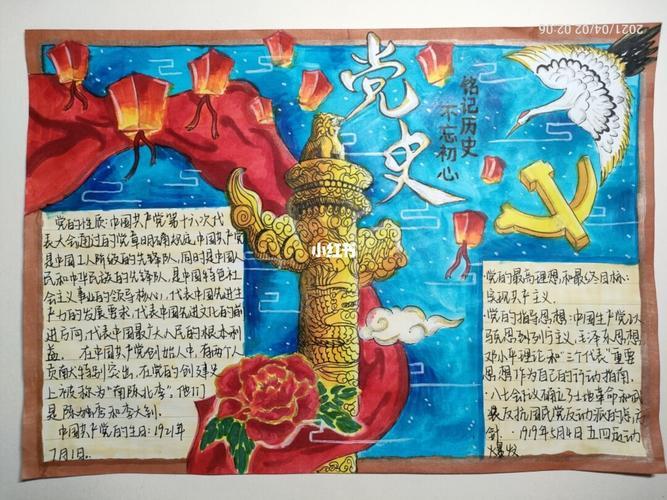 2021/04/02 02:06
党史
铭记历史
不忘初心
小红书
党的性质:中国共产党第十六次代
表大会通过的党章明确规定,中国共产党
是中国工人阶级的先锋队,同时是中国人
民和中华民族的先锋队,是中国特色社
会主义事业的领导核心,代表中国先进生
产力的发展要求,代表中国先进文化的前
进方向,代表中国最广大人民的根本利
益。在中国共产党创始人中,有两个人
贡献特别突出,在党的创建史
上被称为"南陈北李",他们
是陈独秀和李大钊.
中国共产党的生日:1921年
7月1日.
党的最高理想和最终目标:
实现共产主义.
党的指导思想:中国共产党以马
克思列宁主义,毛泽东思想,
邓小平理论和"三个代表"重要
思想作为自己的行动指南.
八七会议确立了土地革命和武
装反抗国民党反动派的总方
针.1919年5月4日五四运动
爆发